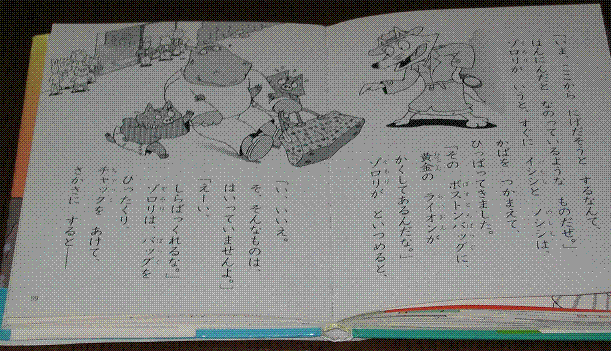 「いま、ここから にげだそうと するなんて、
はんにんだと なのっているような ものだぜ。」
ゾロリが いうと、すぐに イシシと ノシシは、
かばを つかまえて、
ひっぱってきました。
「その ボストンバッグに、
黄金の ライオンが
かくしてあるんだな。」
ゾロリが といつめると、
「い、いいえ。
そ、そんなものは、
はいっていませんよ。」
「えーい、
しらばっくれるな。」
ゾロリは、バッグを
ひったくり
チャックを あけて、
さかさに すると――